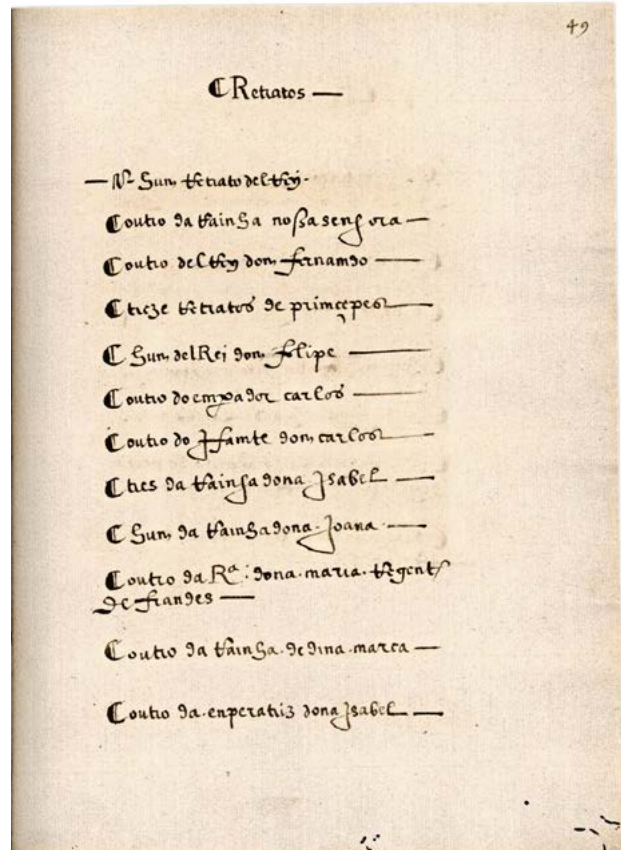 49
¶ Retratos —
— Nº hum Retrato del Rey.
¶ outro da Rainha nossa senhora —
¶ outro del Rey dom fernamdo —
¶ treze Retratos de primçepes —
¶ hum del Rei dom felipe —
¶ outro do empador carlos —
¶ outro do Jfamte dom carlos —
¶ tres da Rainha dona Jsabel —
¶ hum da Rainha dona. Joana. —
¶ outro da Rª. dona. maria. Regent
De frandes —
¶ outro da Rainha. de dina. marca —
¶ outro da. enperatriz dona Jsabel —